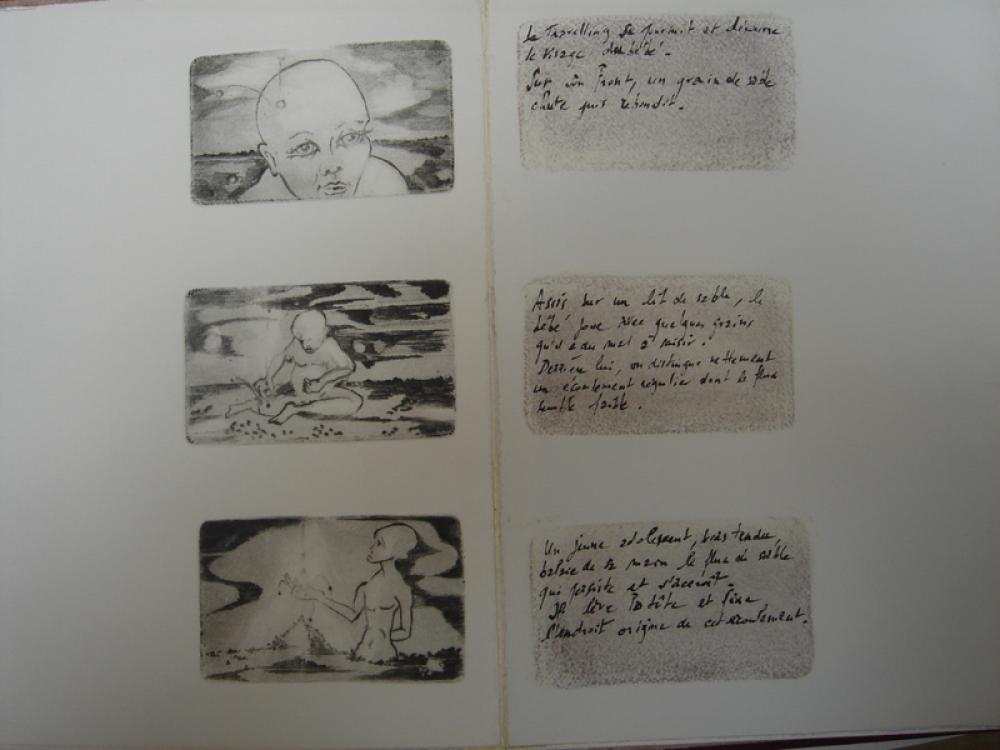 Le Travelling se poursuit et découvre
le visage du bébé.
Sur son front, un grain de sable
chute puis rebondit.
Assis sur un lit de sable, le
bébé joue avec quelques grains
qu'il a du mal à saisir.
Derrière lui, on distingue nettement
un écoulement régulier dont le flux
semble faible.
Un jeune adolescent, bras tendu,
balaie de sa main le flux de sable
qui persiste et s'accroît.
Il lève la tête et fixe
l'endroit origine de cet écoulement.